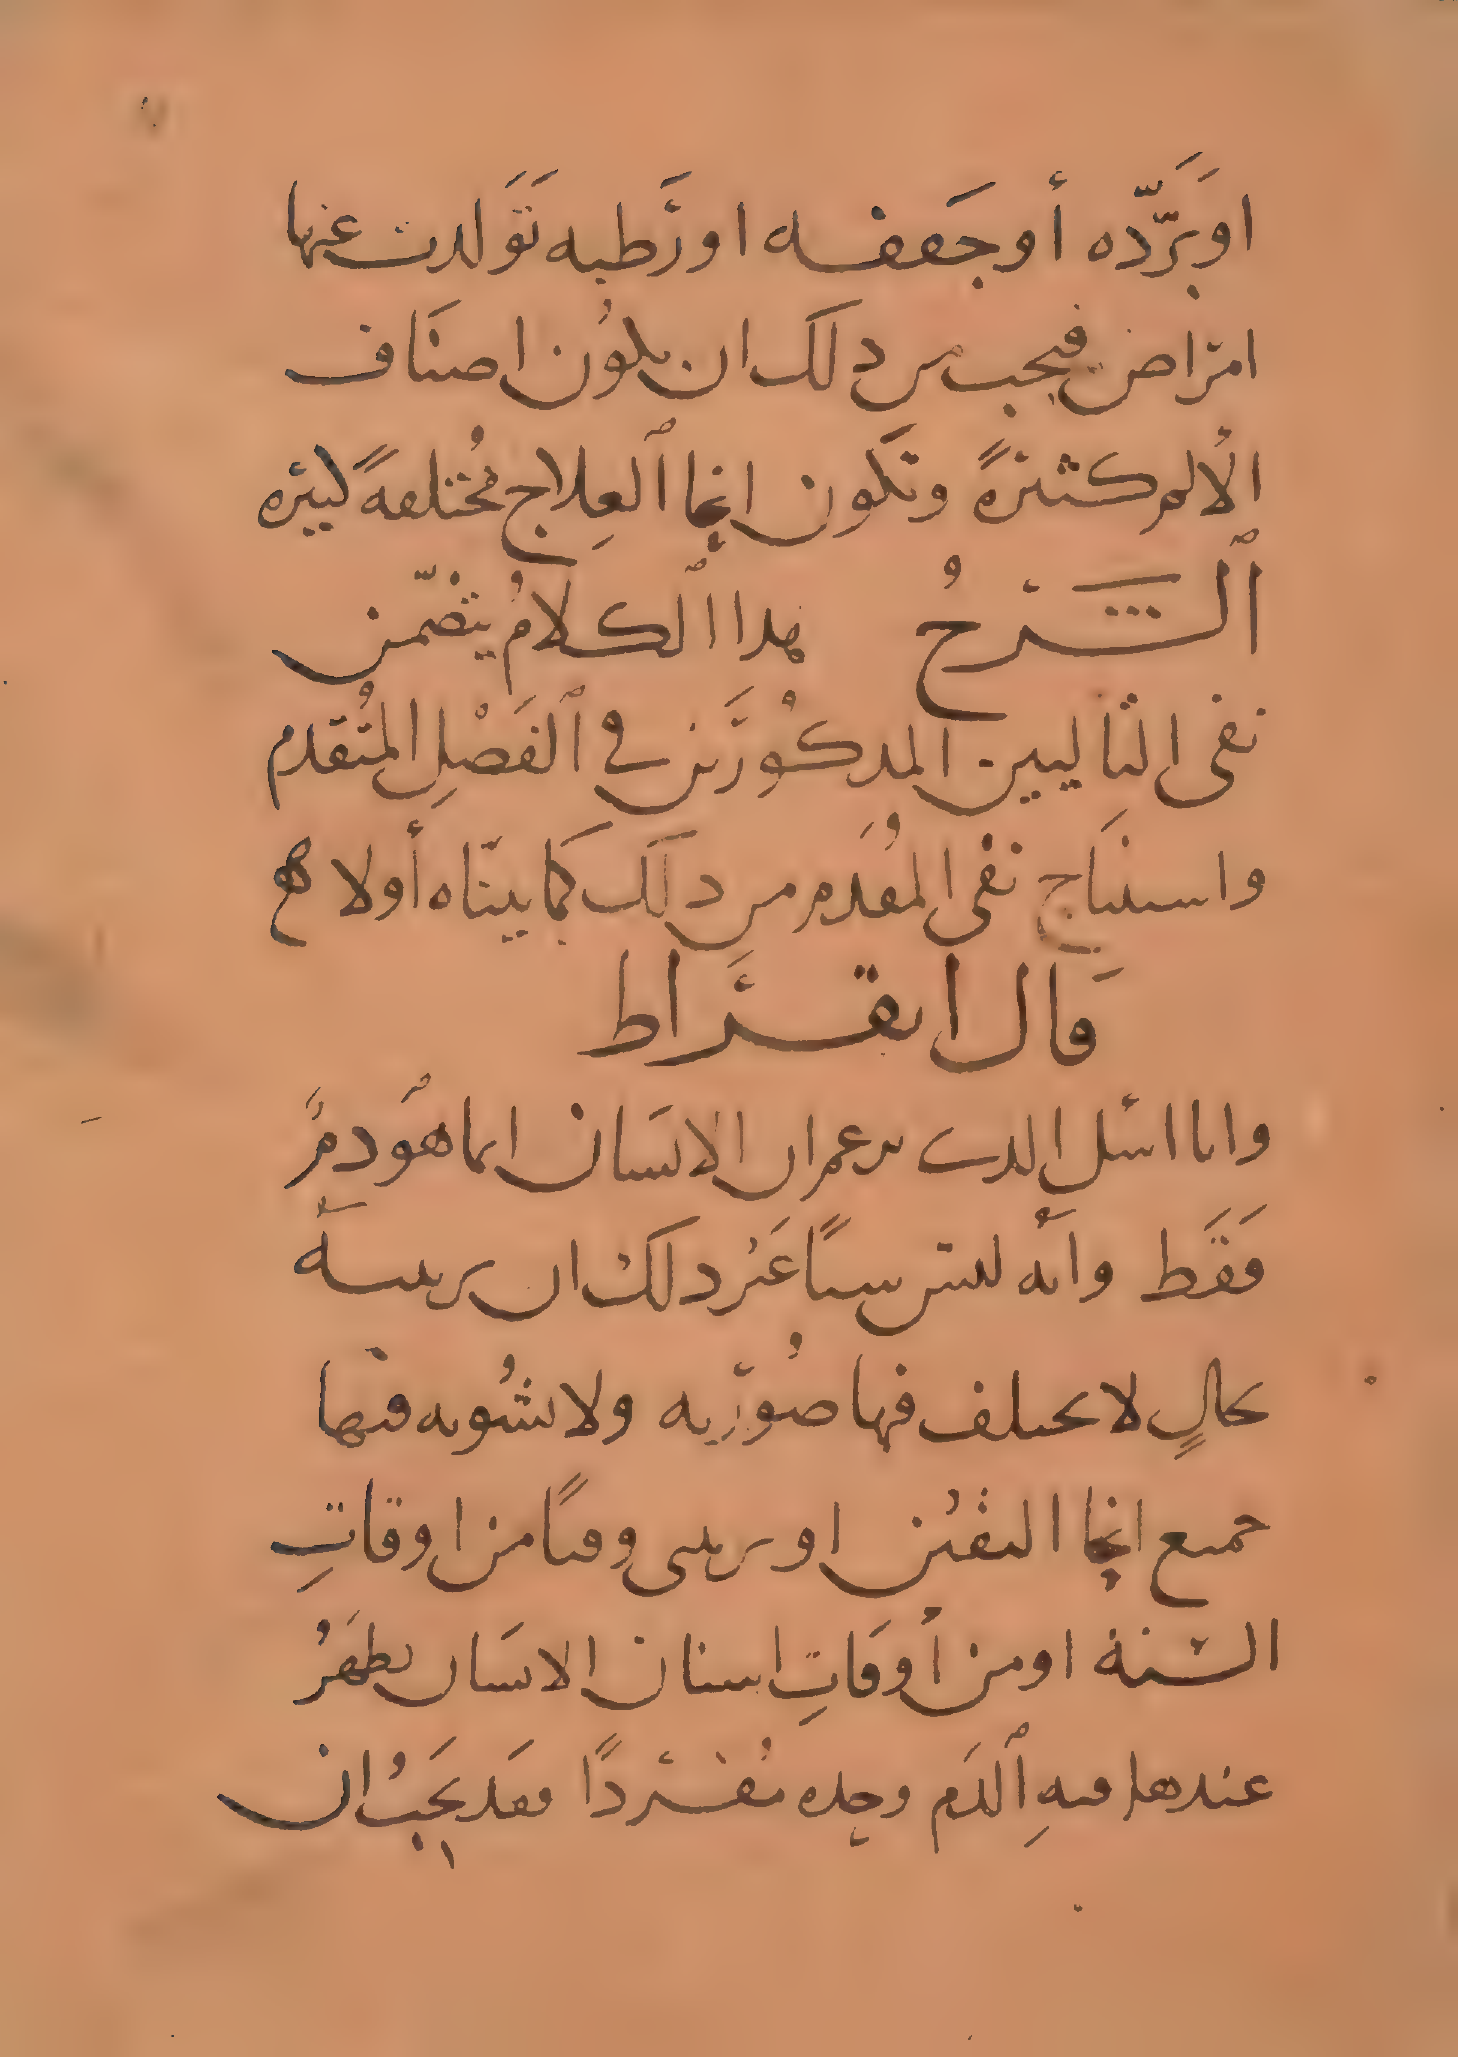 او بَرَّده أو جَففه او رَطبه تَوَلدت عنها
امراض فيجب من ذلك ان يكُون اصنَاف
الألم كثيرةً وتَكون انحا ٱلعِلاج مُختلفةً كثيره
ٱلشَرحُ هذا ٱلكلامُ يتضّمن
نفى التاليين المذكُورَين في ٱلفَصْلِ المُتقدم
واستنَاج نفى المُقَدم من ذلك كَما بينّاه أولا
قَال ابقراط
وانا اسئل الذى يزعم ان الانسَان انما هُو دمٌ
فَقَط وأنه ليس شيئًا غَيْر ذلك ان يرينيه
بحالٍ لا يختلف فيها صُورَته ولا تشُوبه فيها
جميع انحا التفنُن او يرينى وقتًا من اوقاتِ
السّنة او من أوقَاتِ اسنان الانسَان يظهَرُ
عندها فيهِ ٱلدَم وحده مُفردًا فقَد يَجبُ ان